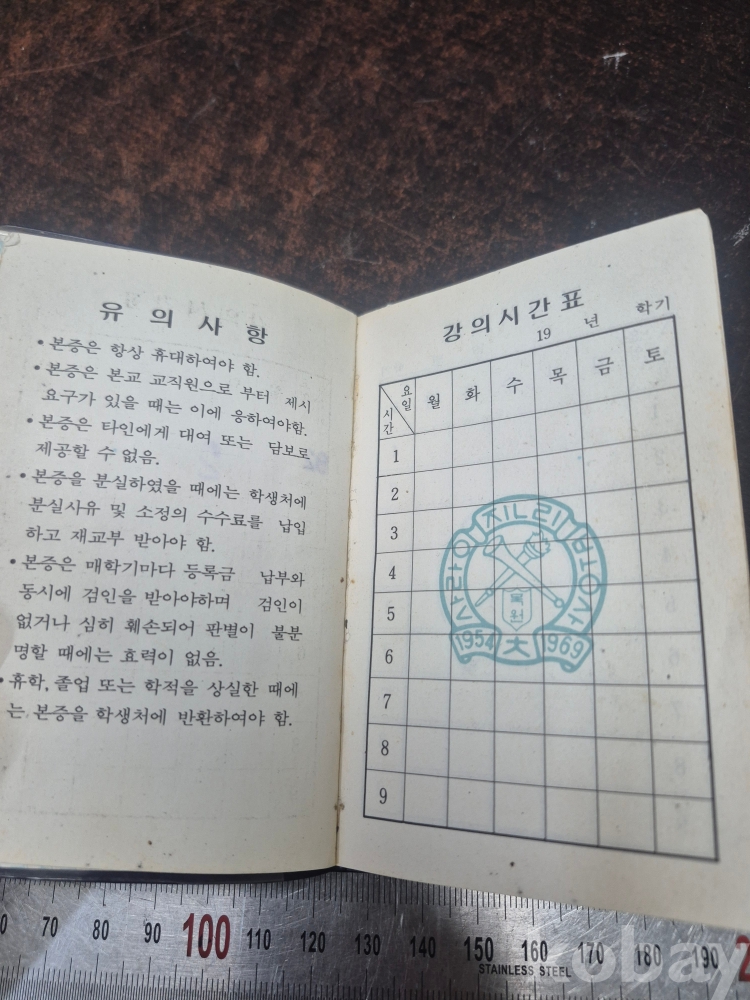 유 의 사 항
• 본증은 항상 휴대하여야 함.
• 본증은 본교 교직원으로 부터 제시
요구가 있을 때는 이에 응하여야함.
• 본증은 타인에게 대여 또는 담보로
제공할 수 없음.
• 본증을 분실하였을 때에는 학생처에
분실사유 및 소정의 수수료를 납입
하고 재교부 받아야 함.
• 본증은 매학기마다 등록금 납부와
동시에 검인을 받아야하며 검인이
없거나 심히 훼손되어 판별이 불분
명할 때에는 효력이 없음.
• 휴학, 졸업 또는 학적을 상실한 때에
는 본증을 학생처에 반환하여야 함.
강의시간표
19 년 학기
요일
시간
월 화 수 목 금 토
1
2
3
4
5
6
7
8
9
진리
사랑
봉사
목원
1954 大 1969
70 80 90 100 110 120 130 140 150 160 170 180 190
STAINLESS STEEL
kobay